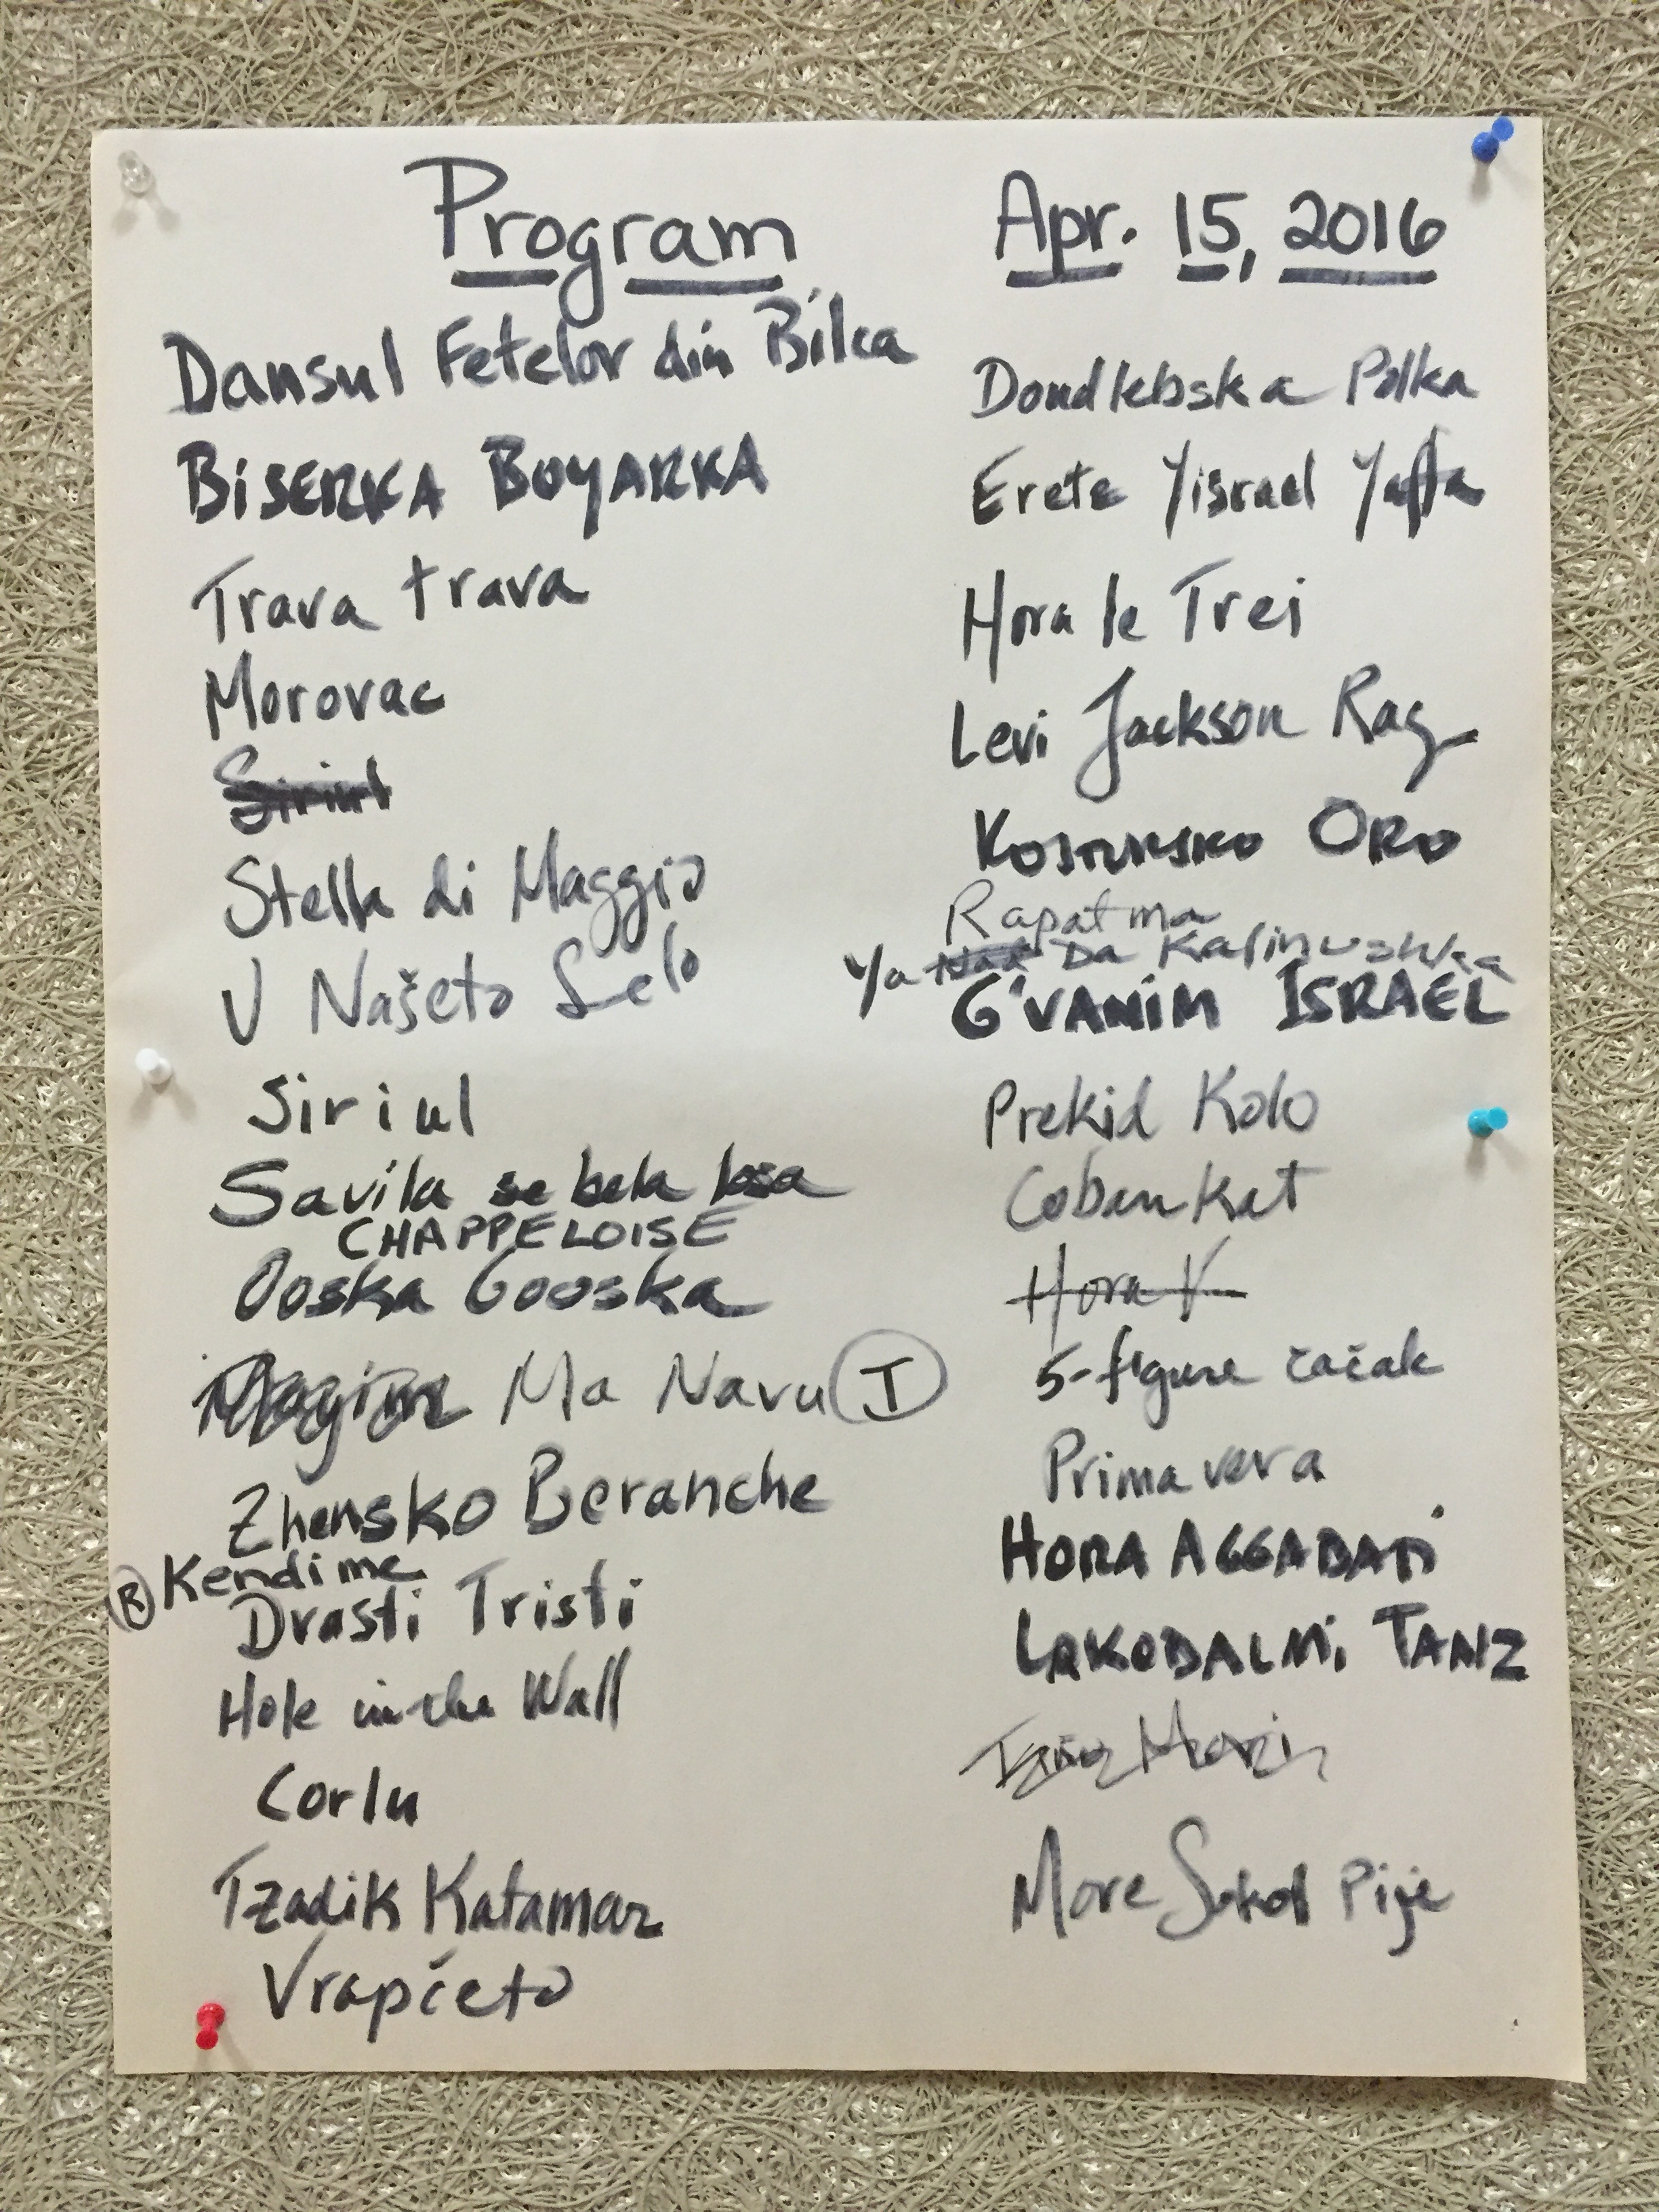 Program
Dansul Fetelor din Bilca
BiSERKA BOYARKA
Trava trava
Morovac
Siriul
Stella di Maggio
U Našeto Selo
Siriul
Savila se bela loza
CHAPPELOISE
Ooska Gooska
Ma Navu T
Zhensko Beranche
R Kendime
Drasti Tristi
Hole in the Wall
Corlu
Tzadik Katamar
Vrapčeto
Apr. 15, 2016
Doudlebska Polka
Erete Yisrael Yaffa
Hora le Trei
Levi Jackson Rag
KOSTURSKO ORO
Rapatma
Ya Da Kalinushka
G'VANiM ISRAEL
Prekid Kolo
Cobankat
Hora V
5-figure čačak
Primavera
HORA AGGADATi
LAKODALMi TANZ
More Sokol Pije